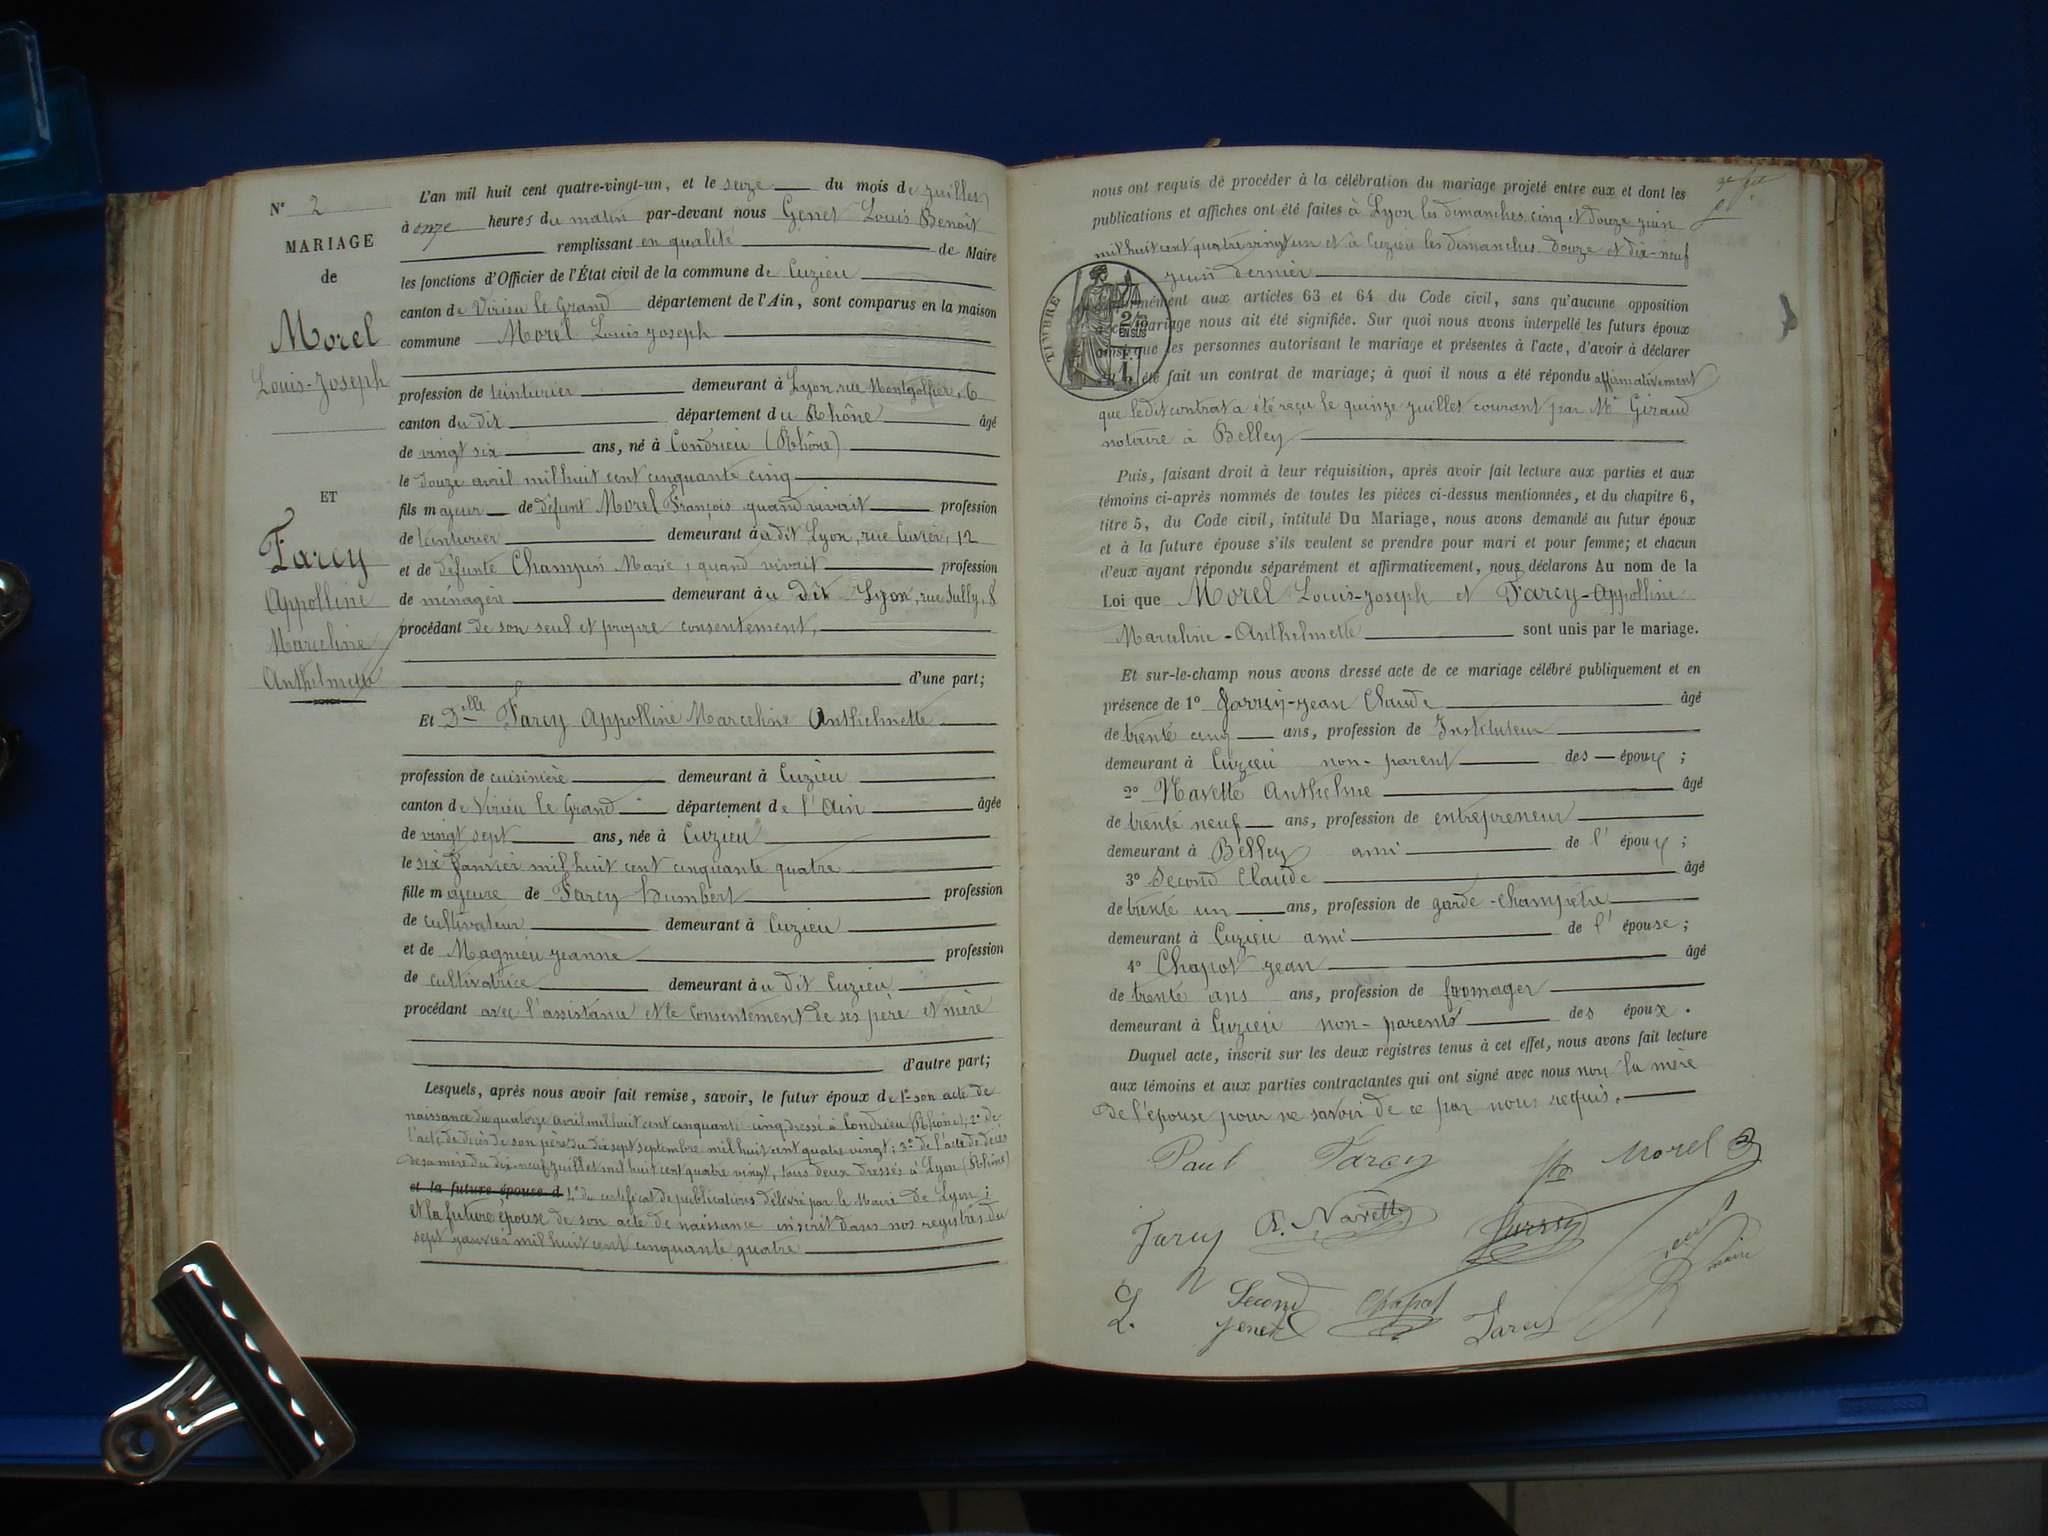 N° 2
MARIAGE
de
Morel
Louis-Joseph
ET
Farcy
Appolline
Marceline
Anthelmette
L'an mil huit cent quatre-vingt-un, et le seize du mois de juillet
à onze heures du matin par-devant nous Genet Louis Benoît
remplissant en qualité de Maire
les fonctions d'Officier de l'État civil de la commune de Cuzieu
canton de Virieu le Grand département de l'Ain, sont comparus en la maison
commune Morel Louis Joseph
profession de teinturier demeurant à Lyon, rue Montgolfier, 6
canton du dit département du Rhône âgé
de vingt six ans, né à Condrieu (Rhône)
le douze avril mil huit cent cinquante cinq
fils majeur de défunt Morel François quand vivait profession
de teinturier demeurant au dit Lyon, rue Cuvier, 12
et de défunte Champin Marie, quand vivait profession
de ménagère demeurant au dit Lyon, rue Sully, 8
procédant de son seul et propre consentement,
d'une part;
Et Delle Farcy Appolline Marceline Anthelmette
profession de cuisinière demeurant à Cuzieu
canton de Virieu le Grand département de l'Ain âgée
de vingt sept ans, née à Cuzieu
le six janvier mil huit cent cinquante quatre
fille majeure de Farcy Humbert profession
de cultivateur demeurant à Cuzieu
et de Magnieu Jeanne profession
de cultivatrice demeurant au dit Cuzieu
procédant avec l'assistance et le consentement de ses père et mère
d'autre part;
Lesquels, après nous avoir fait remise, savoir, le futur époux de 1° son acte de
naissance du quatorze avril mil huit cent cinquante-cinq, dressé à Condrieu (Rhône); 2° de
l'acte de décès de son père du dix sept septembre mil huit cent quatre vingt; 3° de l'acte de décès
de sa mère du dix-neuf juillet mil huit cent quatre vingt, tous deux dressés à Lyon (Rhône)
et la future épouse d 4° du certificat de publications délivré par le Maire de Lyon;
et la future épouse de son acte de naissance inscrit dans nos registres du
sept janvier mil huit cent cinquante quatre
nous ont requis de procéder à la célébration du mariage projeté entre eux et dont les
publications et affiches ont été faites à Lyon les dimanches cinq et douze juin
mil huit cent quatre vingt un et à Cuzieu les dimanches douze et dix-neuf
juin dernier
TIMBRE
2/10
EN SUS
conformément aux articles 63 et 64 du Code civil, sans qu'aucune opposition
mariage nous ait été signifiée. Sur quoi nous avons interpellé les futurs époux
ainsi que les personnes autorisant le mariage et présentes à l'acte, d'avoir à déclarer
été fait un contrat de mariage; à quoi il nous a été répondu affirmativement
que le dit contrat a été reçu le quinze juillet courant par Me Giraud
notaire à Belley
Puis, faisant droit à leur réquisition, après avoir fait lecture aux parties et aux
témoins ci-après nommés de toutes les pièces ci-dessus mentionnées, et du chapitre 6,
titre 5, du Code civil, intitulé Du Mariage, nous avons demandé au futur époux
et à la future épouse s'ils veulent se prendre pour mari et pour femme; et chacun
d'eux ayant répondu séparément et affirmativement, nous déclarons Au nom de la
Loi que Morel Louis-Joseph et Farcy-Appolline
Marceline-Anthelmette sont unis par le mariage.
Et sur-le-champ nous avons dressé acte de ce mariage célébré publiquement et en
présence de 1° Jean Claude âgé
de trente cinq ans, profession de Instituteur
demeurant à Cuzieu non-parent des époux;
2° Navette Anthelme âgé
de trente neuf ans, profession de entrepreneur
demeurant à Belley ami de l'époux;
3° Second Claude âgé
de trente un ans, profession de garde-champêtre
demeurant à Cuzieu ami de l'épouse;
4° Chapot Jean âgé
de trente ans ans, profession de fromager
demeurant à Cuzieu non-parents des époux.
Duquel acte, inscrit sur les deux registres tenus à cet effet, nous avons fait lecture
aux témoins et aux parties contractantes qui ont signé avec nous non la mère
de l'épouse pour ne savoir de ce par nous requis.
Paul Farcy Morel
Farcy A. Navette
Second Chapot Farcy
Genet maire